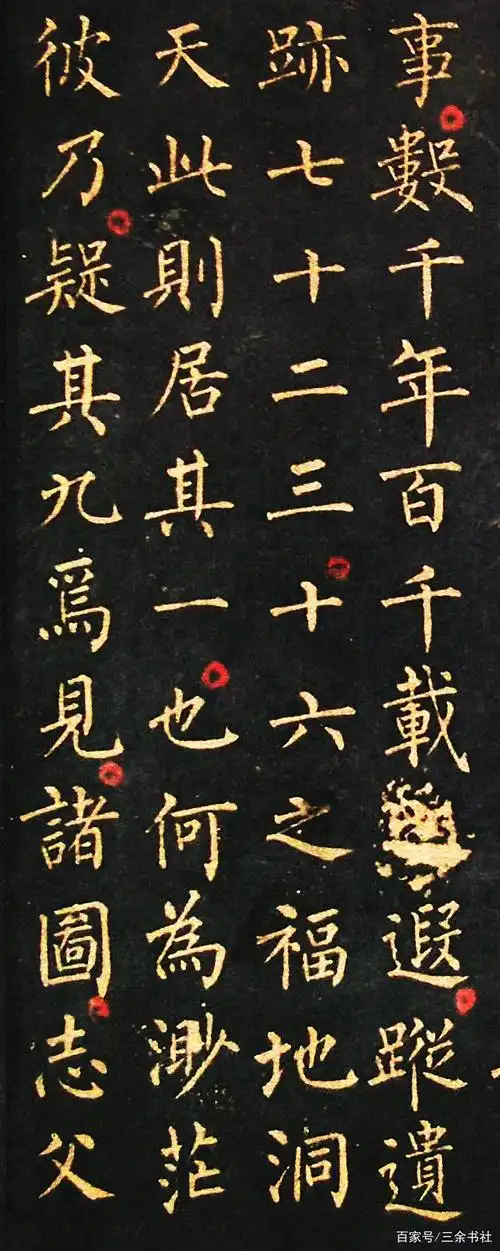 事數千年百千載遐蹤遺
跡七十二三十六之福地洞
天此則居其一也何為渺茫
彼乃疑其九爲見諸圖志父
百家号/三余书社